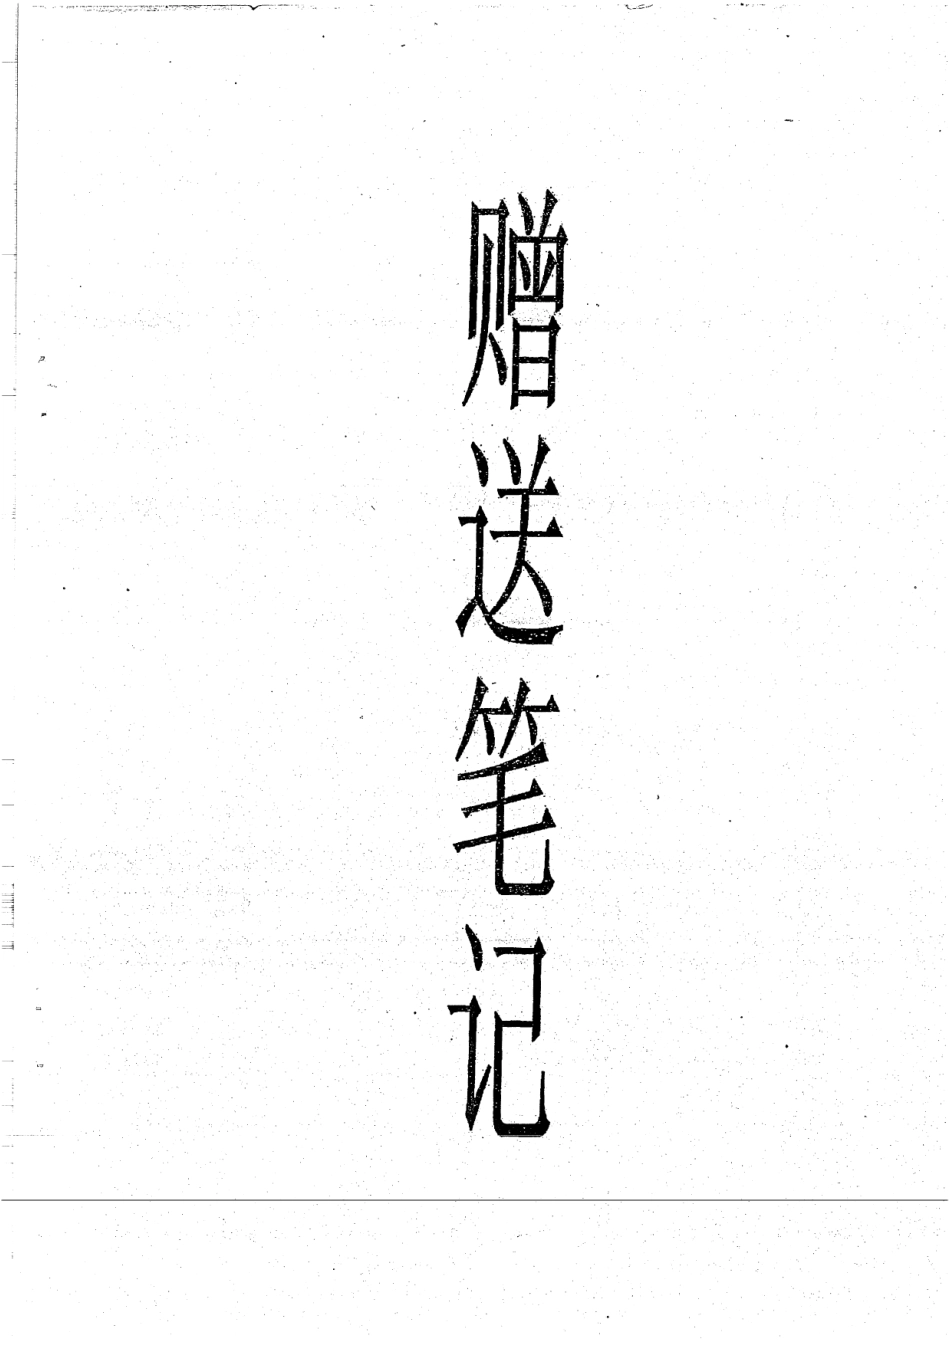 赠送笔记